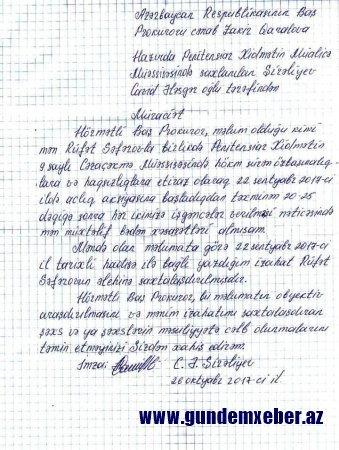 Azərbaycan Respublikasının Baş
Prokuroru cənab Zakir Qaralova
Hazırda Penitensiar Xidmətin Müalicə
Müəssisəsində saxlanılan Şirəliyev
Cavid Əsgər oğlu tərəfindən
Müraciət
Hörmətli Baş Prokuror, məlum olduğu kimi
mən Rüfət Səfərovla birlikdə Penitensiar Xidmətin
9 saylı Cəzaçəkmə Müəssisəsində hökm sürən özbaşınalıq-
lara və haqsızlıqlara etiraz olaraq 22 sentyabr 2017-ci
ildə aclıq aksiyasına başladıqdan təxminən 20-25
dəqiqə sonra hər ikimizə işgəncələr verilməsi nəticəsində
mən müxtəlif bədən xəsarətləri almışam.
Məndə olan məlumata görə 22 sentyabr 2017-ci
il tarixli hadisə ilə bağlı yazdığım izahat Rüfət
Səfərovun əleyhinə saxtalaşdırılmışdır.
Hörmətli Baş Prokuror, bu məlumatın obyektiv
araşdırılmasını və mənim izahatımı saxtalaşdıran
şəxs və ya şəxslərin məsuliyyətə cəlb olunmalarını
təmin etməyinizi Sizdən xahiş edirəm.
İmza: C. Ə. Şirəliyev
26 oktyabr 2017-ci il.
www.gundemxeber.az